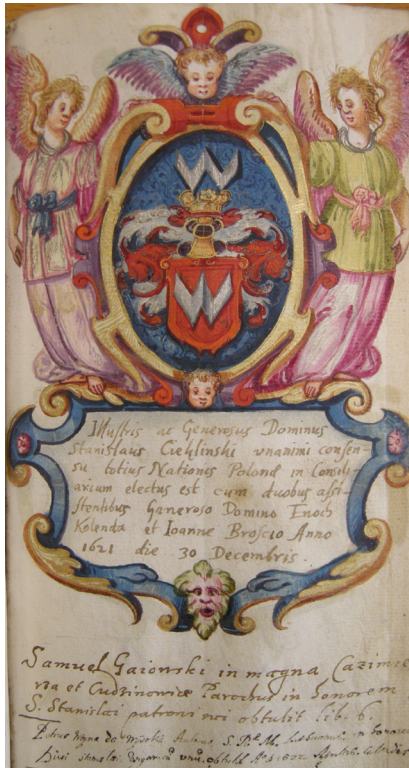 Illustris ac Generosus Dominus
Stanislaus Ciekliński unanimi consen-
su totius Nationis Polonæ in Consily-
arium electus est cum duobus assi-
stentibus Generoso Domino Enoch
Kolenda et Ioanne Broscio Anno
1621 die 30 Decembris.
Samuel Gaiowski in magna Cazimi
ria et Cudzinowice Parochus in honorem
S. Stanislai patroni nri obtulit lib. 6.
Petrus
in honorem
Divi Stanislai obtulit